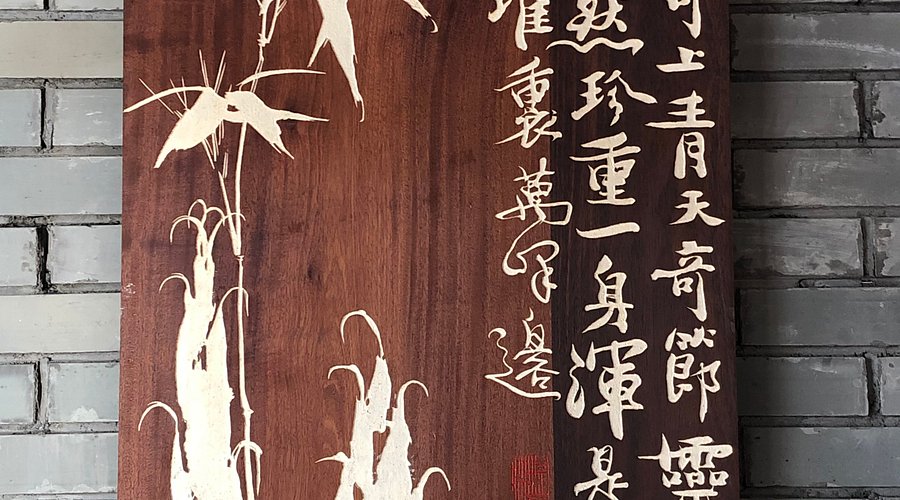 可上青天奇節靈
然珍重一身渾是
裏萬邊